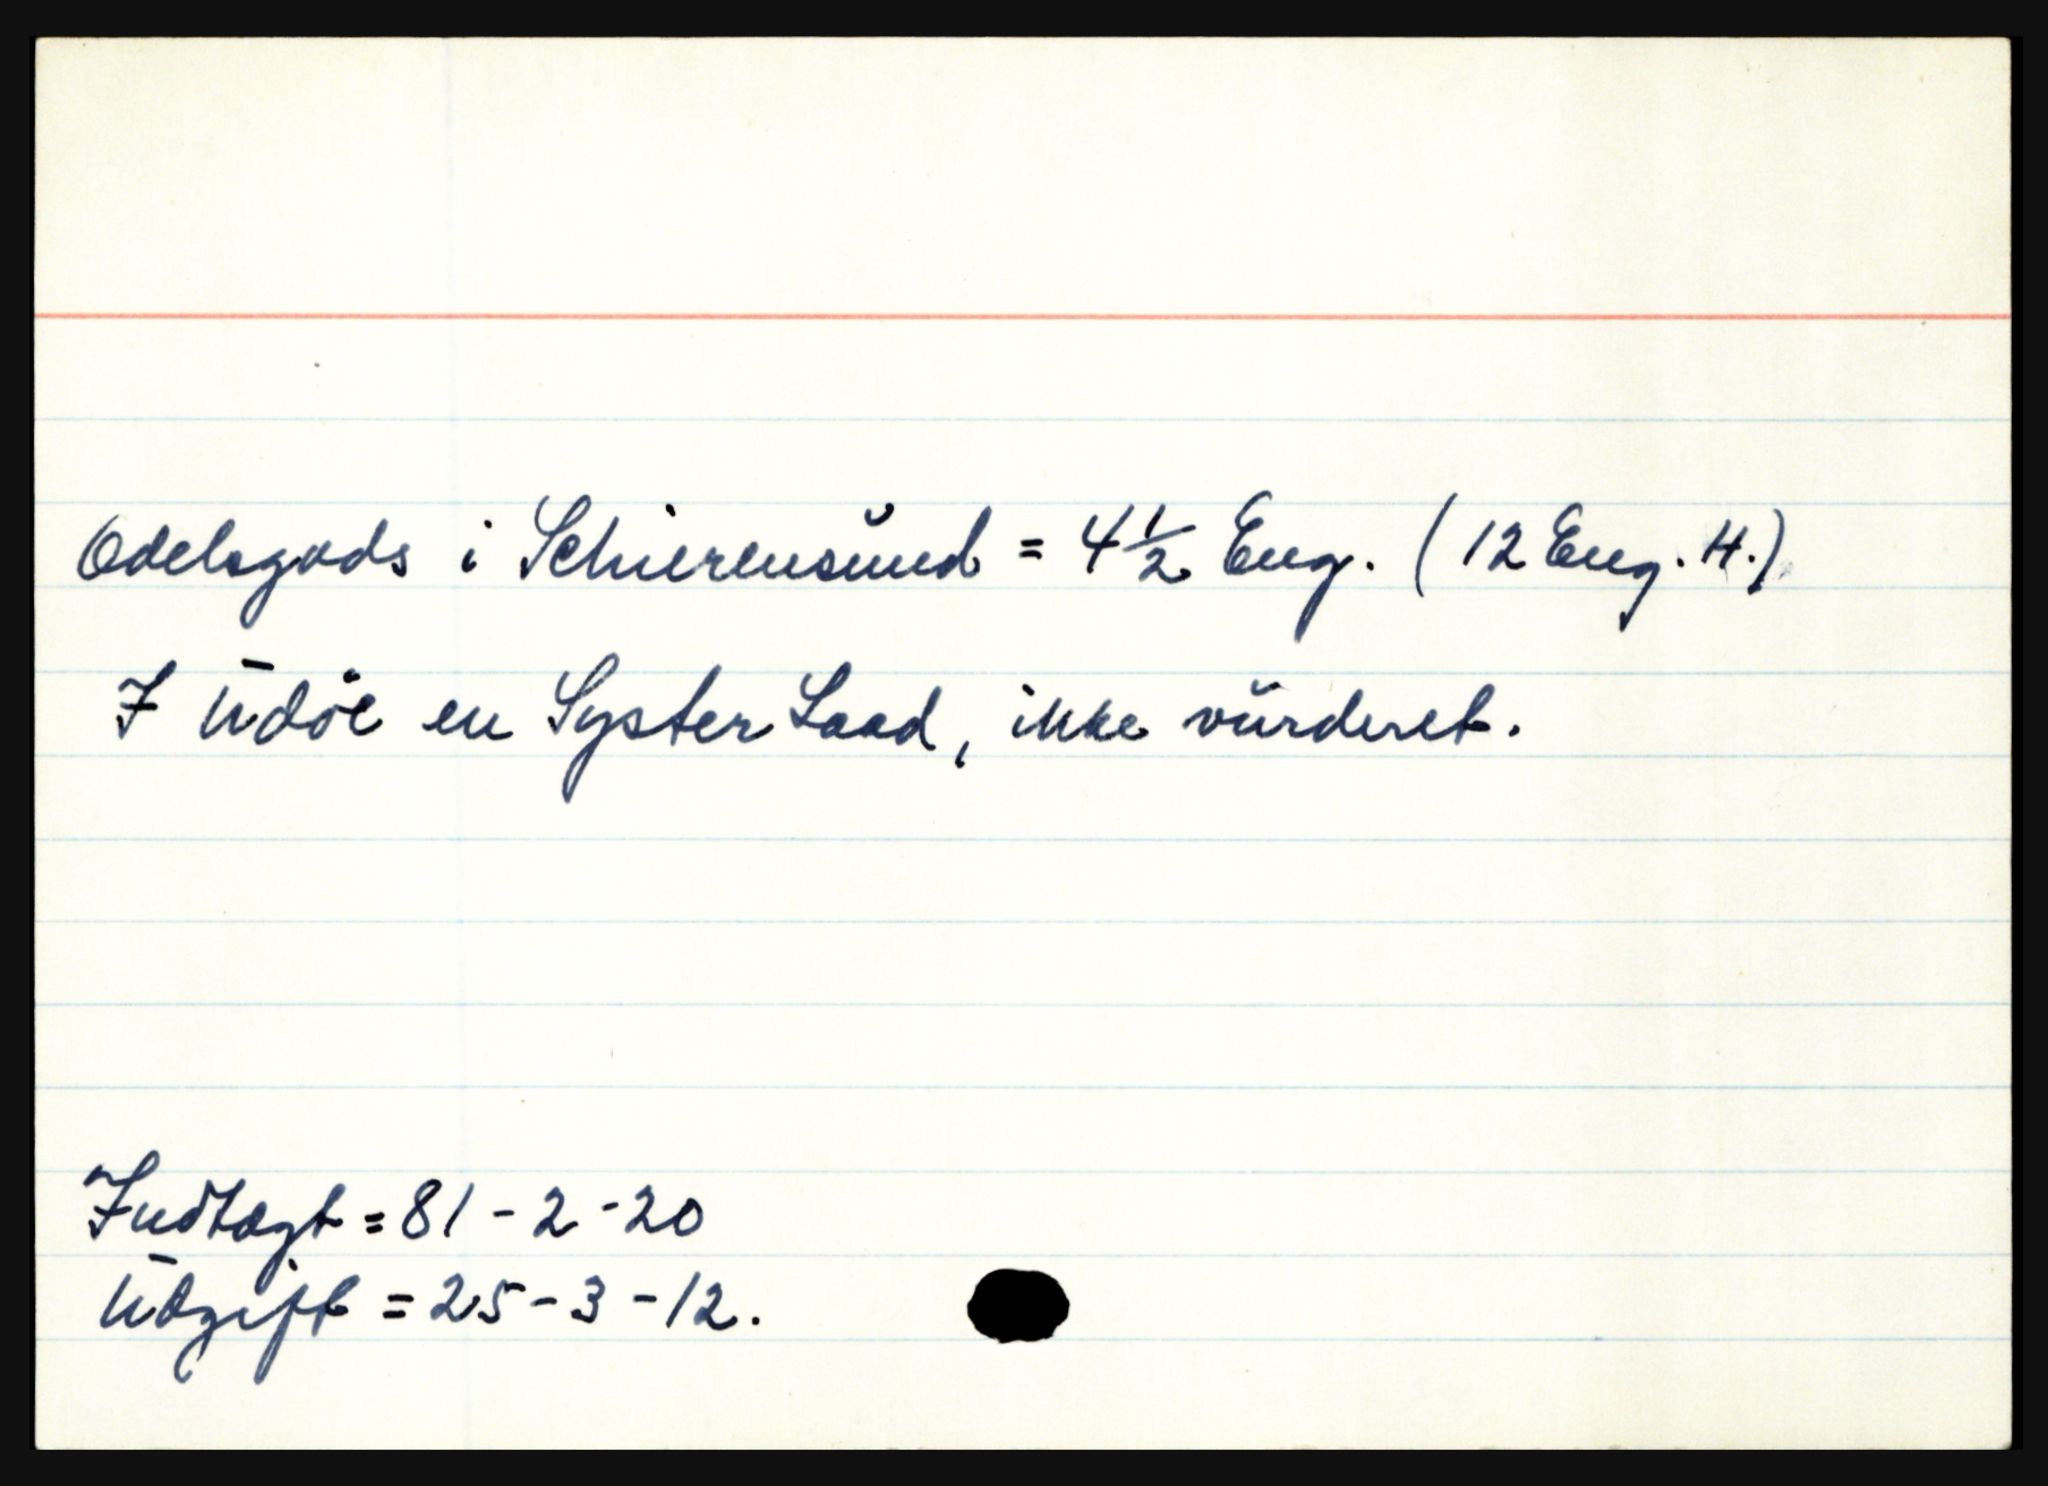 Odelsgods i Schierensund = 4 1/2 Eng. (12 Eng. H.)
I Udöe en Syster Laad, ikke vurderet.
Indtægt = 81 - 2 - 20
Udgift = 25 - 3 - 12.